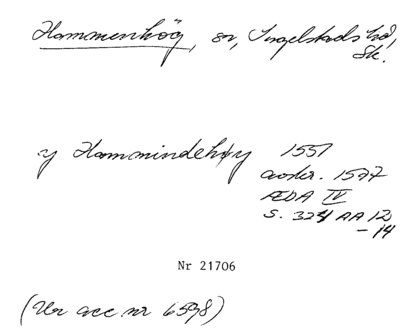 Hammenhög, sn, Ingelstads hd,
Sk.
y Hammindehøy 1551
avskr. 1577
ÆDA IV
S. 324 AA 12
-14
Nr 21706
(Ur acc nr 6598)